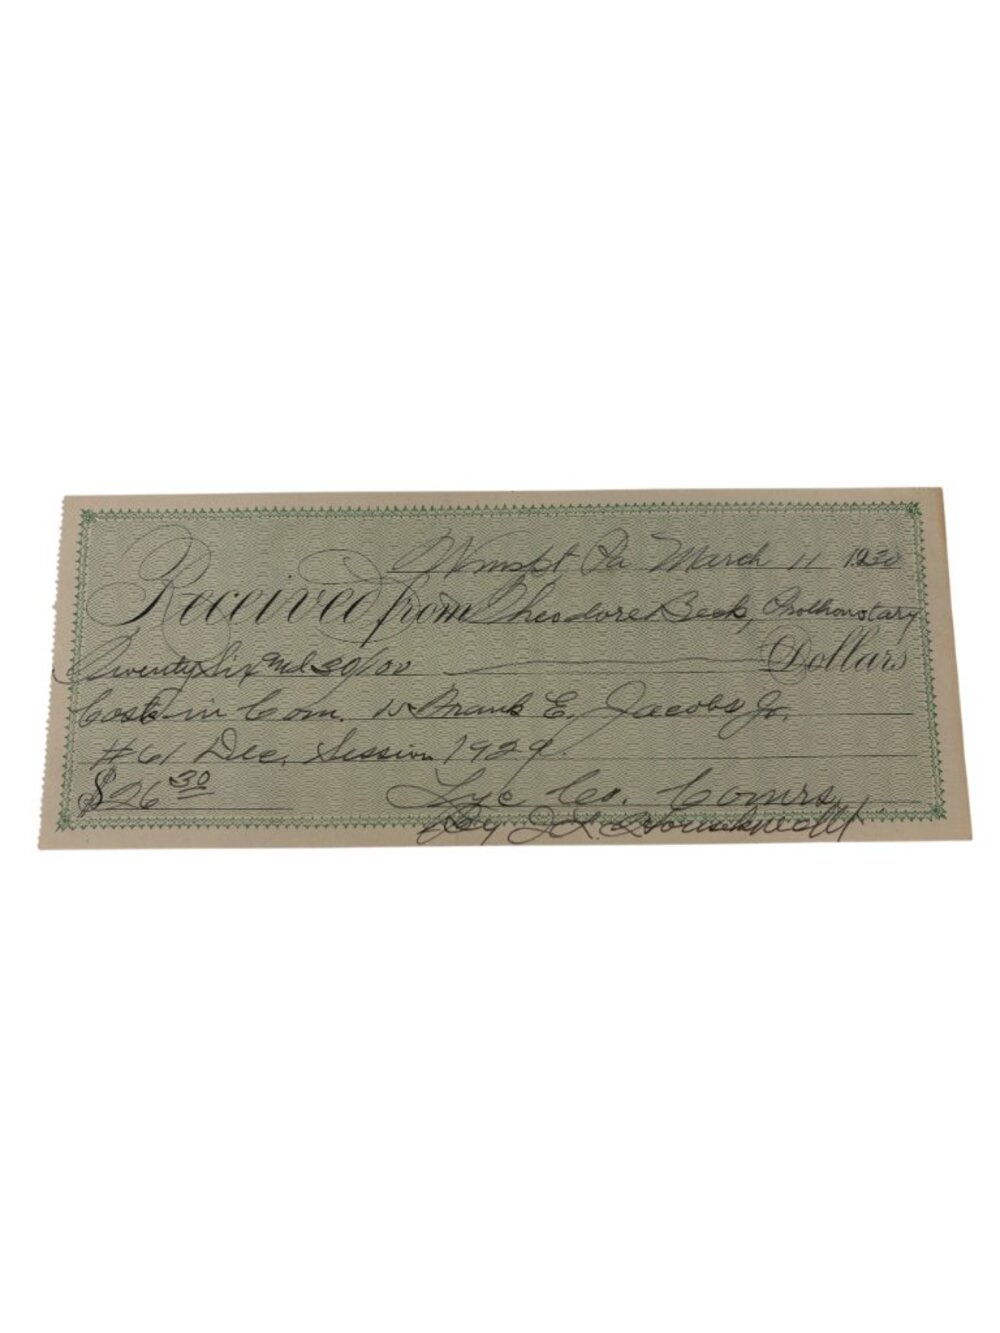 Wmspt Pa March 11 1930
Received from Theodore Beck, Prothonotary
Twenty Six and 30/100 Dollars
Costs in Com. vs Frank E. Jacobs Jr.
#61 Dec. Session 1929.
$26 30
Lyc Co. Comrs
By Houseknecht